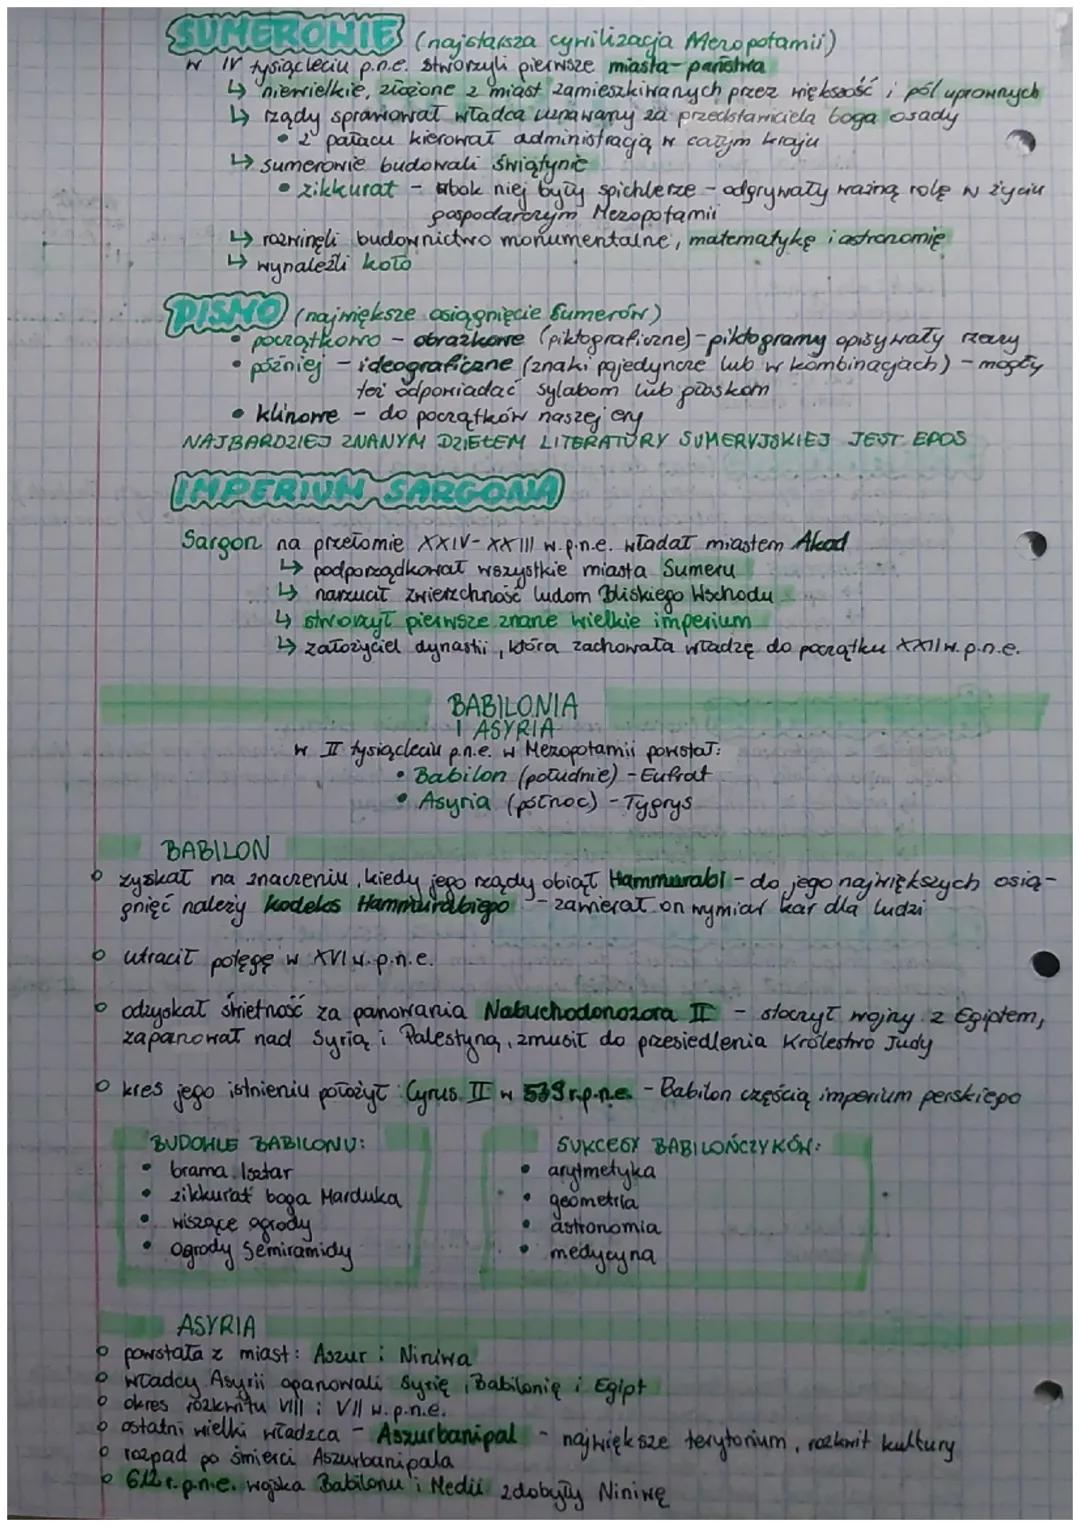 SUMEROWIE (najstarsza cywilizacja Mezopotamii)
w IV tysiącleciu p.n.e. stworzyli pierwsze miasta-państwa
↳ niewielkie, złożone z miast zamieszkiwanych przez większość i pól uprawnych
↳ rządy sprawował władca uznawany za przedstawiciela boga osady
• z pałacu kierował administracją w całym kraju
↳ sumerowie budowali świątynie
• zikkurat - obok niej były spichlerze - odgrywały ważną rolę w życiu
gospodarczym Mezopotamii
↳ rozwinęli budownictwo monumentalne, matematykę i astronomię
↳ wynaleźli koło
PISMO (największe osiągnięcie Sumerów)
• początkowo - obrazkowe (piktograficzne) - piktogramy opisywały rzeczy
• później - ideograficzne (znaki pojedyncze lub w kombinacjach) - mogły
też odpowiadać sylabom lub głoskom
• klinowe - do początków naszej ery
NAJBARDZIEJ ZNANYM DZIEŁEM LITERATURY SUMERYJSKIEJ JEST EPOS
IMPERIUM SARGONA
Sargon na przełomie XXIV-XXIII w.p.n.e. władał miastem Akad
↳ podporządkował wszystkie miasta Sumeru
↳ narzucił zwierzchność ludom Bliskiego Wschodu
↳ stworzył pierwsze znane wielkie imperium
↳ założyciel dynastii, która zachowała władzę do początku XXII w.p.n.e.
BABILONIA
I ASYRIA
w II tysiącleciu p.n.e. w Mezopotamii powstał:
• Babilon (południe) - Eufrat
• Asyria (północ) - Tygrys
BABILON
o zyskał na znaczeniu, kiedy jego rządy objął Hammurabi - do jego największych osią-
gnięć należy kodeks Hammurabiego - zawierał on wymiar kar dla ludzi
o utracił potęgę w XVI w.p.n.e.
o odzyskał świetność za panowania Nabuchodonozora II - stoczył wojny z Egiptem,
zapanował nad Syrią i Palestyną, zmusił do przesiedlenia Królestwo Judy
o kres jego istnieniu położył Cyrus II w 539 r.p.n.e. - Babilon częścią imperium perskiego
BUDOWLE BABILONU:
• brama Isztar
• zikkurat boga Marduka
• wiszące ogrody
• ogrody Semiramidy
SUKCESY BABILOŃCZYKÓW:
• arytmetyka
• geometria
• astronomia
• medycyna
ASYRIA
o powstała z miast: Aszur i Niniwa
o władcy Asyrii opanowali Syrię, Babilonię i Egipt
o okres rozkwitu VIII i VII w.p.n.e.
o ostatni wielki władca - Aszurbanipal - największe terytorium, rozkwit kultury
o rozpad po śmierci Aszurbanipala
o 612 r.p.n.e. wojska Babilonu i Medii zdobyły Niniwę